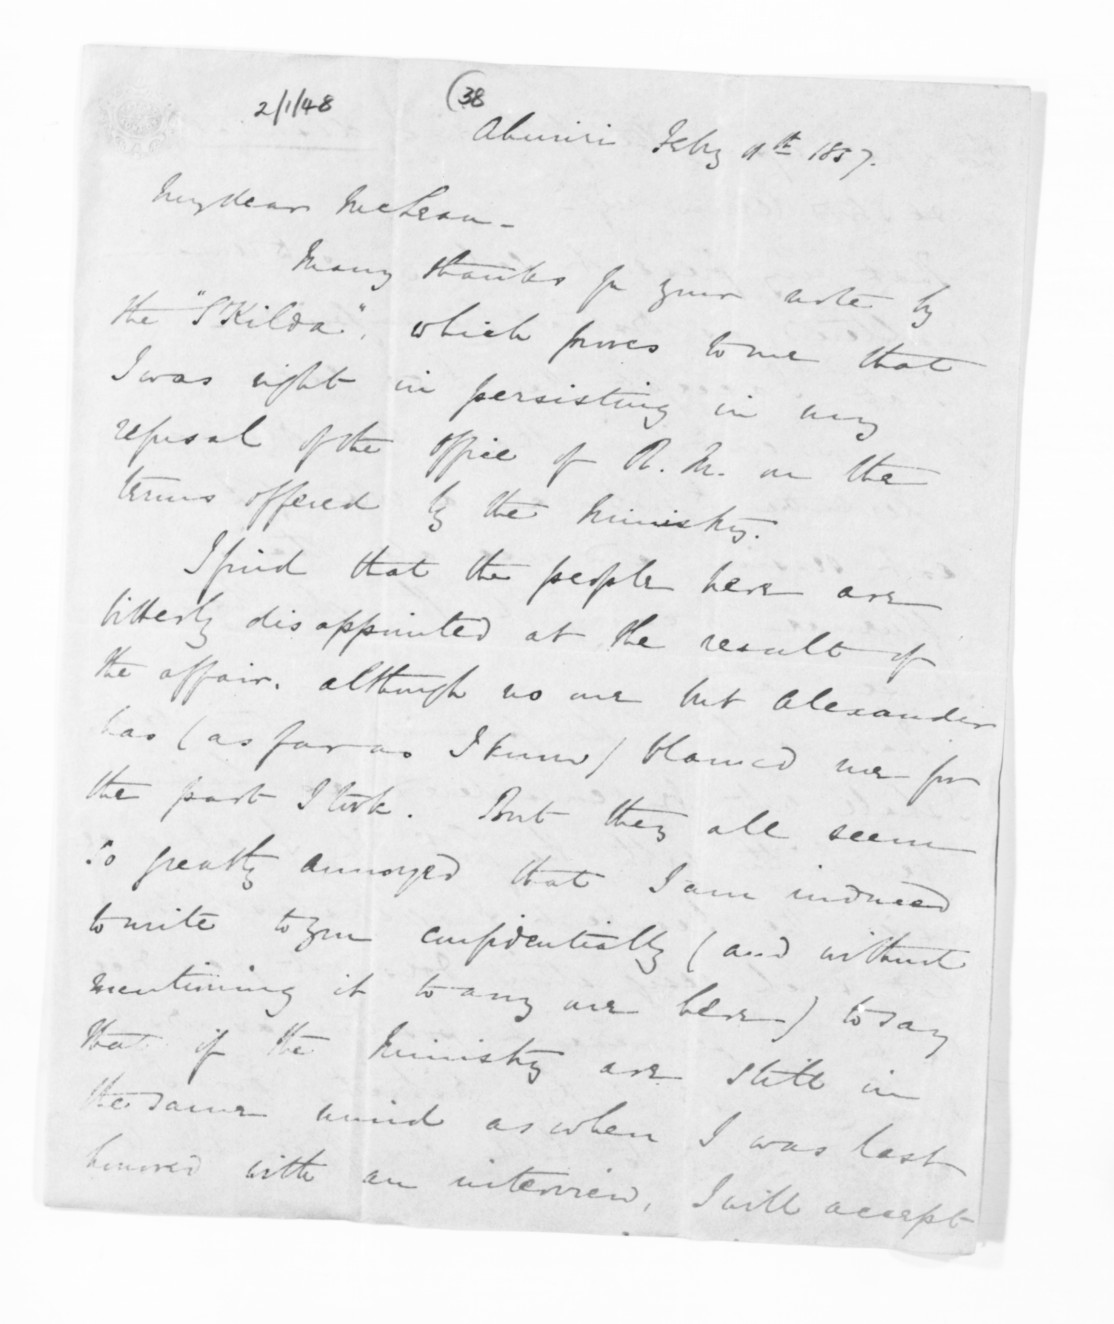 2/1/48
(38
Ahuriri Feby 9th 1857.
My dear McLean -
Many thanks for your note by
the "St Kilda", which proves to me that
I was right in persisting in my
refusal of the office of R. M. on the
terms offered by the Ministry.
I find that the people here are
bitterly disappointed at the result of
the affair, although no one but Alexander
has (as far as I know) blamed me for
the part I took. But they all seem
so greatly annoyed that I am induced
to write to you confidentially (and without
mentioning it to any one here) to say
that if the Ministry are still in
the same mind as when I was last
honored with an interview, I will accept